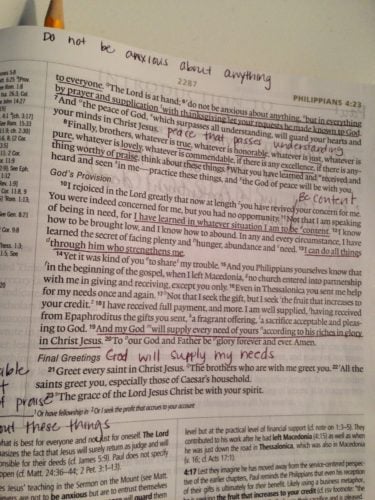 Do not be anxious about anything
2287
PHILIPPIANS 4:23
to everyone. The Lord is at hand; do not be anxious about anything, but in everything
by prayer and supplication with thanksgiving let your requests be made known to God.
7And the peace of God, which surpasses all understanding, will guard your hearts and
your minds in Christ Jesus. peace that passes understanding
8Finally, brothers, whatever is true, whatever is honorable, whatever is just, whatever is
pure, whatever is lovely, whatever is commendable, if there is any excellence, if there is any-
thing worthy of praise, think about these things. What you have learned and received and
heard and seen in me—practice these things, and the God of peace will be with you.
Be content
God's Provision
10I rejoiced in the Lord greatly that now at length you have revived your concern for me.
You were indeed concerned for me, but you had no opportunity. Not that I am speaking
of being in need, for I have learned in whatever situation I am to be content. I know
how to be brought low, and I know how to abound. In any and every circumstance, I have
learned the secret of facing plenty and hunger, abundance and need. I can do all things
through him who strengthens me.
14Yet it was kind of you to share my trouble. 15And you Philippians yourselves know that
in the beginning of the gospel, when I left Macedonia, no church entered into partnership
with me in giving and receiving, except you only. 16Even in Thessalonica you sent me help
for my needs once and again. 17Not that I seek the gift, but I seek the fruit that increases to
your credit. 18I have received full payment, and more. I am well supplied, having received
from Epaphroditus the gifts you sent, a fragrant offering, a sacrifice acceptable and pleas-
ing to God. 19And my God will supply every need of yours according to his riches in glory
in Christ Jesus. 20To our God and Father be glory forever and ever. Amen.
Final Greetings God will supply my needs
21Greet every saint in Christ Jesus. The brothers who are with me greet you. 22All the
saints greet you, especially those of Caesar's household.
23The grace of the Lord Jesus Christ be with your spirit.
of praise
these things
1 Or have fellowship in 2 Or I seek the profit that accrues to your account
what is best for everyone and not just for oneself. The Lord
level but at the practical level of financial support (cf. note on 1:3–5). They
contributed to his work after he had left Macedonia (4:15) as well as when
he was just down the road in Thessalonica, which was also in Macedonia
(v. 16; cf. Acts 17:1).
4:17 Lest they imagine he has moved away from the service-centered perspec-
tive of the earlier chapters, Paul reminds the Philippians that even his reception
of their gifts is ultimately for their benefit. Likely using a business metaphor,